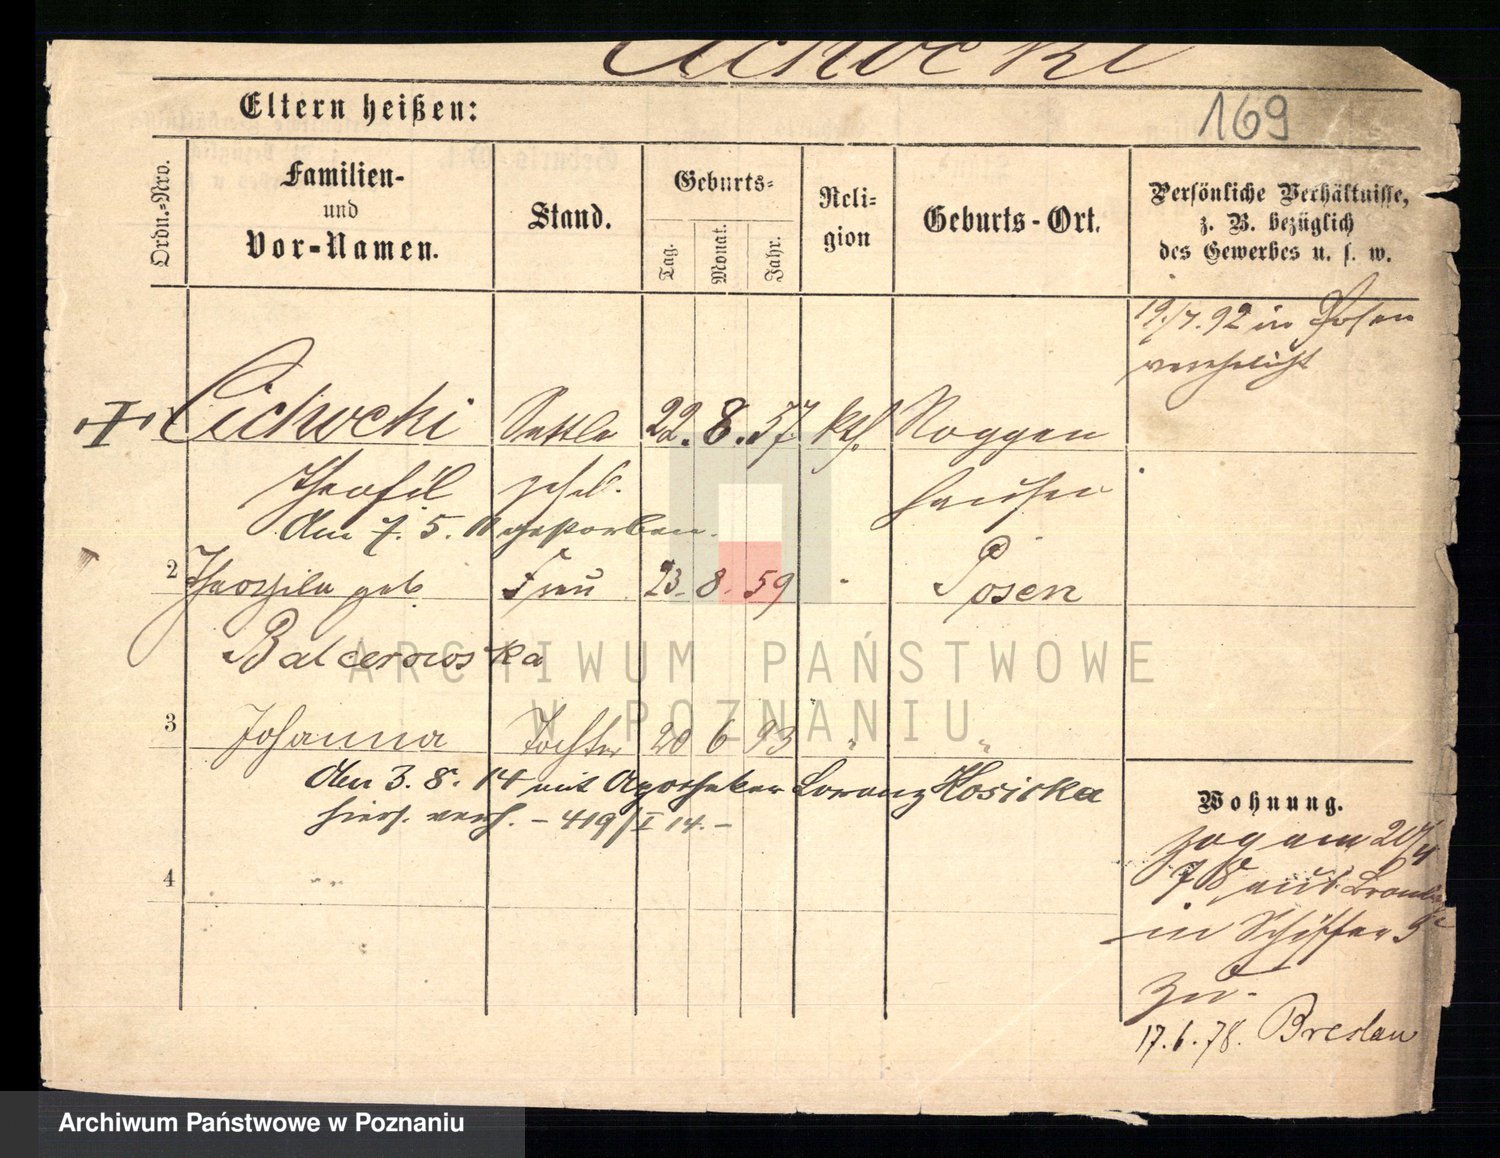 Cichocki
Eltern heißen:
169
Ordn.-Nro.
Familien-
und
Vor-Namen.
Stand.
Geburts-
Tag.
Monat.
Jahr.
Reli-
gion
Geburts-Ort.
Persönliche Verhältnisse,
z. B. bezüglich
des Gewerbes u. s. w.
19/7.92 in Posen
verehelicht
Cichocki Sattler 22. 8. 57 kth. Roggen
Theofil gesell. hausen
Am 7. 5. gestorben.
2 Theophila geb Frau 23. 8. 59 " Posen
Balcerowska
3 Johanna Tochter 20 6 93 " "
Am 3. 8. 14 mit Apotheker Lorenz Kosicka
hiers. verh. - 419/I 14. -
4
Wohnung.
zog am 20/4
78 aus
in Schiffer
zu.
17. 6. 78. Breslau
ARCHIWUM PAŃSTWOWE
W POZNANIU
Archiwum Państwowe w Poznaniu